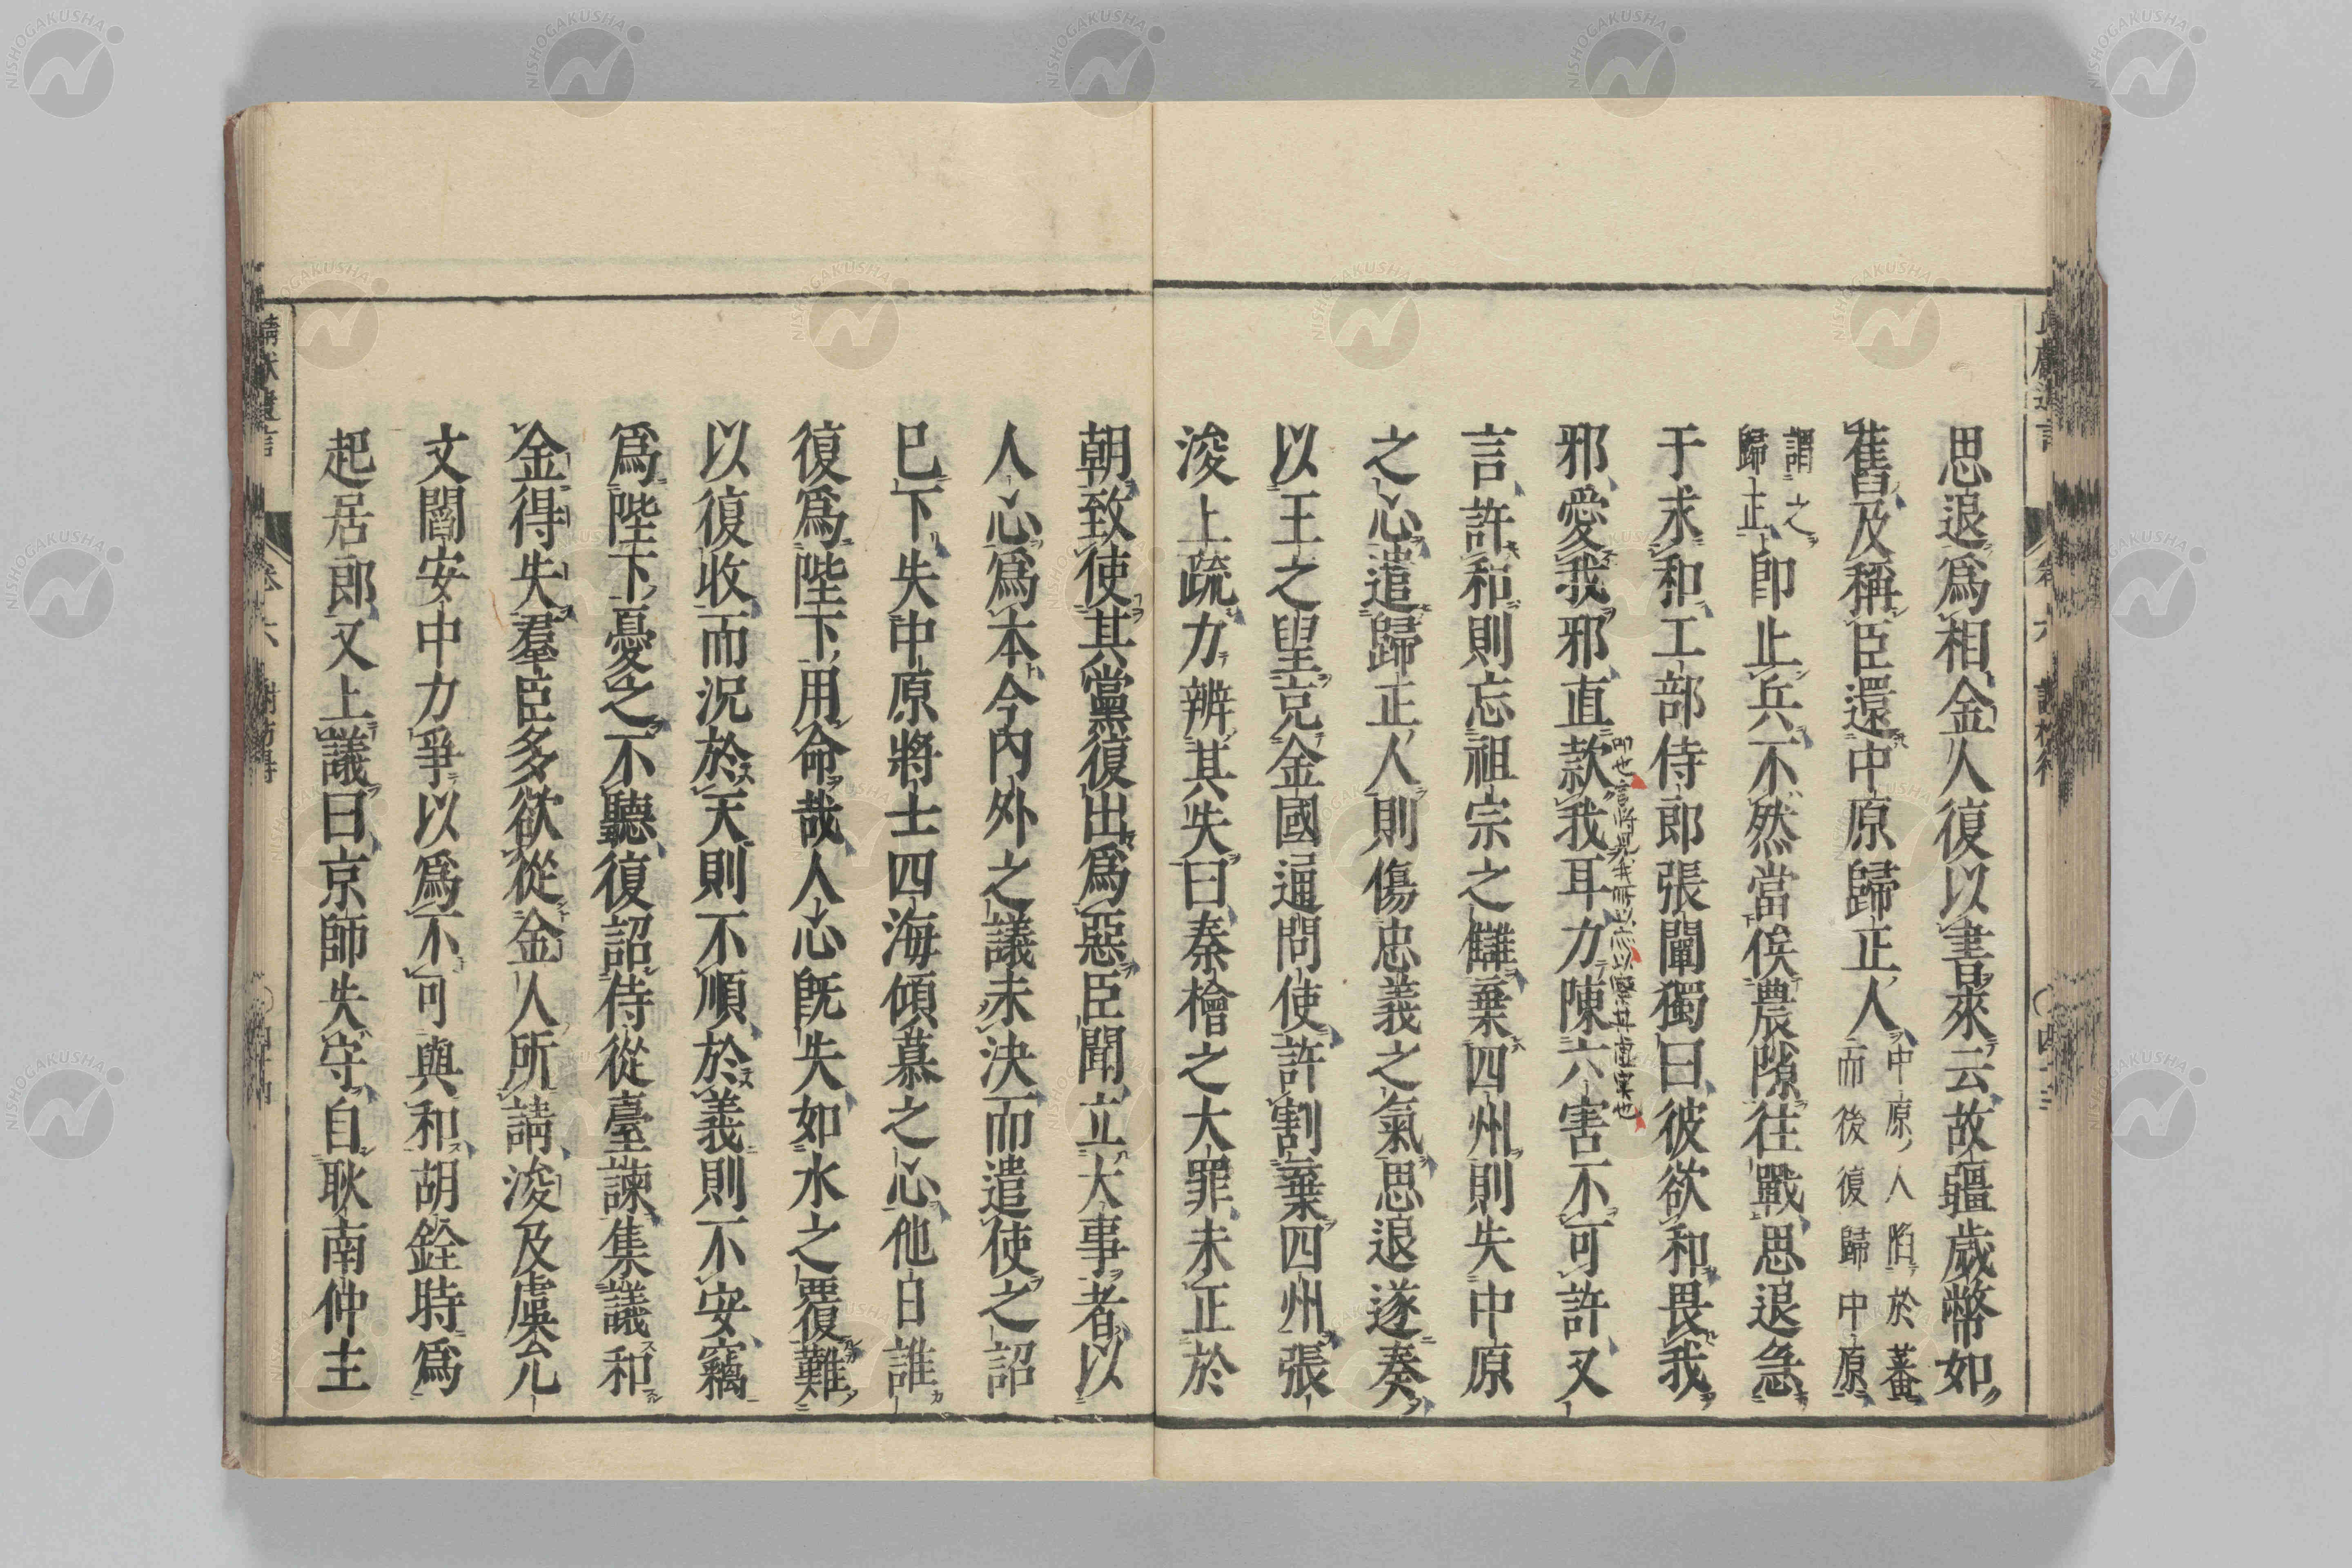 思退爲相金人復以書來云故疆歲幣如
舊及稱臣還中原歸正人中原人陷於蕃而後復歸中原
謂之歸正即止兵不然當俟農隙往戰思退急
于求和工部侍郎張闡獨曰彼欲和畏我
邪愛我邪直款我耳力陳六害不可許又
言許和則忘祖宗之讎棄四州則失中原
之心遣歸正人則傷忠義之氣思退遂奏
以王之望充金國通問使許割棄四州張
浚上疏力辨其失曰秦檜之大罪未正於
朝致使其黨復出爲惡臣聞立大事者以
人心爲本今內外之議未決而遣使之詔
已下失中原將士四海傾慕之心他日誰
復爲陛下用命哉人心既失如水之覆難
以復收而況於天則不順於義則不安竊
爲陛下憂之不聽復詔侍從臺諫集議和
金得失羣臣多欲從金人所請浚及虞允
文閻安中力爭以爲不可與和胡銓時爲
起居郎又上議曰京師失守自耿南仲主
靖獻遺言
卷六
NISHOGAKUSHA